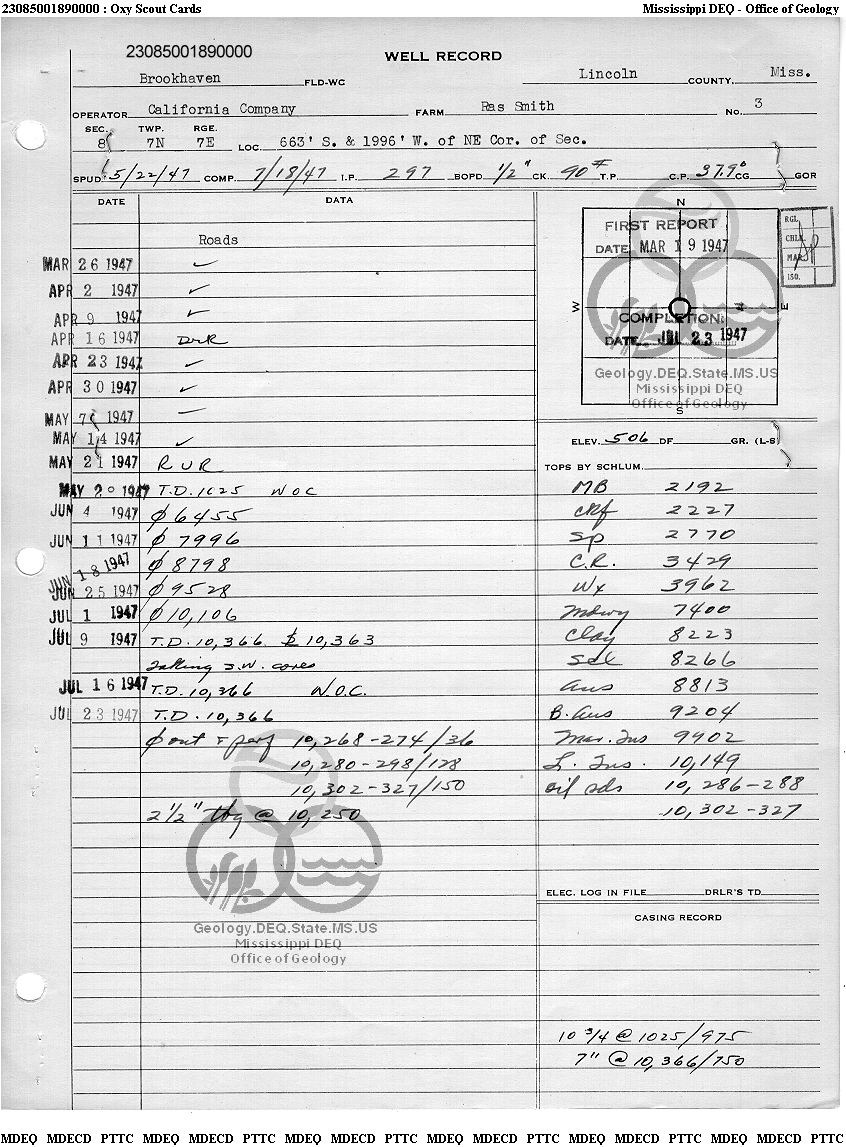 23085001890000 : Oxy Scout Cards Mississippi DEQ - Office of Geology
23085001890000
WELL RECORD
Brookhaven FLD-WC Lincoln COUNTY. Miss.
OPERATOR California Company FARM Ras Smith NO. 3
SEC. TWP. RGE.
8 7N 7E LOC. 663' S. & 1996' W. of NE Cor. of Sec.
SPUD. 5/22/47 COMP. 7/18/47 I.P. 297 BOPD 1/2" CK. 90# T.P. C.P. 37.9° CG GOR
DATE DATA
Roads
MAR 26 1947 ✓
APR 2 1947 ✓
APR 9 1947 ✓
APR 16 1947 DrR
APR 23 1947 ✓
APR 30 1947 ✓
MAY 7 1947 —
MAY 14 1947 ✓
MAY 21 1947 RUR
MAY 1947 T.D. 1025 WOC
JUN 4 1947 ∅ 6455
JUN 11 1947 ∅ 7996
JUN 18 1947 ∅ 8798
JUN 25 1947 ∅ 9528
JUL 1 1947 ∅ 10,106
JUL 9 1947 T.D. 10,366 10,363
Taking S.W. cores
JUL 16 1947 T.D. 10,366 W.O.C.
JUL 23 1947 T.D. 10,366
∅ out & perf 10,268-274/36
10,280-298/128
10,302-327/150
2 1/2" tbg @ 10,250
N
FIRST REPORT
DATE MAR 19 1947
W E
COMPLETION:
DATE JUL 23 1947
S
RGL
CHLK
MAR.
ISO.
Geology.DEQ.State.MS.US
Mississippi DEQ
Office of Geology
ELEV. 506 DF GR. (L-S)
TOPS BY SCHLUM.
MB 2192
Ckf 2227
Sp 2770
C.R. 3429
Wx 3962
Mdwy 7400
Clay 8223
Sel 8266
Aus 8813
B. Aus 9204
Mar. Tus 9902
L. Tus. 10,149
oil sds 10,286-288
10,302-327
ELEC. LOG IN FILE DRLR'S TD
CASING RECORD
10 3/4 @ 1025/975
7" @ 10,366/750
Geology.DEQ.State.MS.US
Mississippi DEQ
Office of Geology
MDEQ MDECD PTTC MDEQ MDECD PTTC MDEQ MDECD PTTC MDEQ MDECD PTTC MDEQ MDECD PTTC MDEQ MDECD PTTC